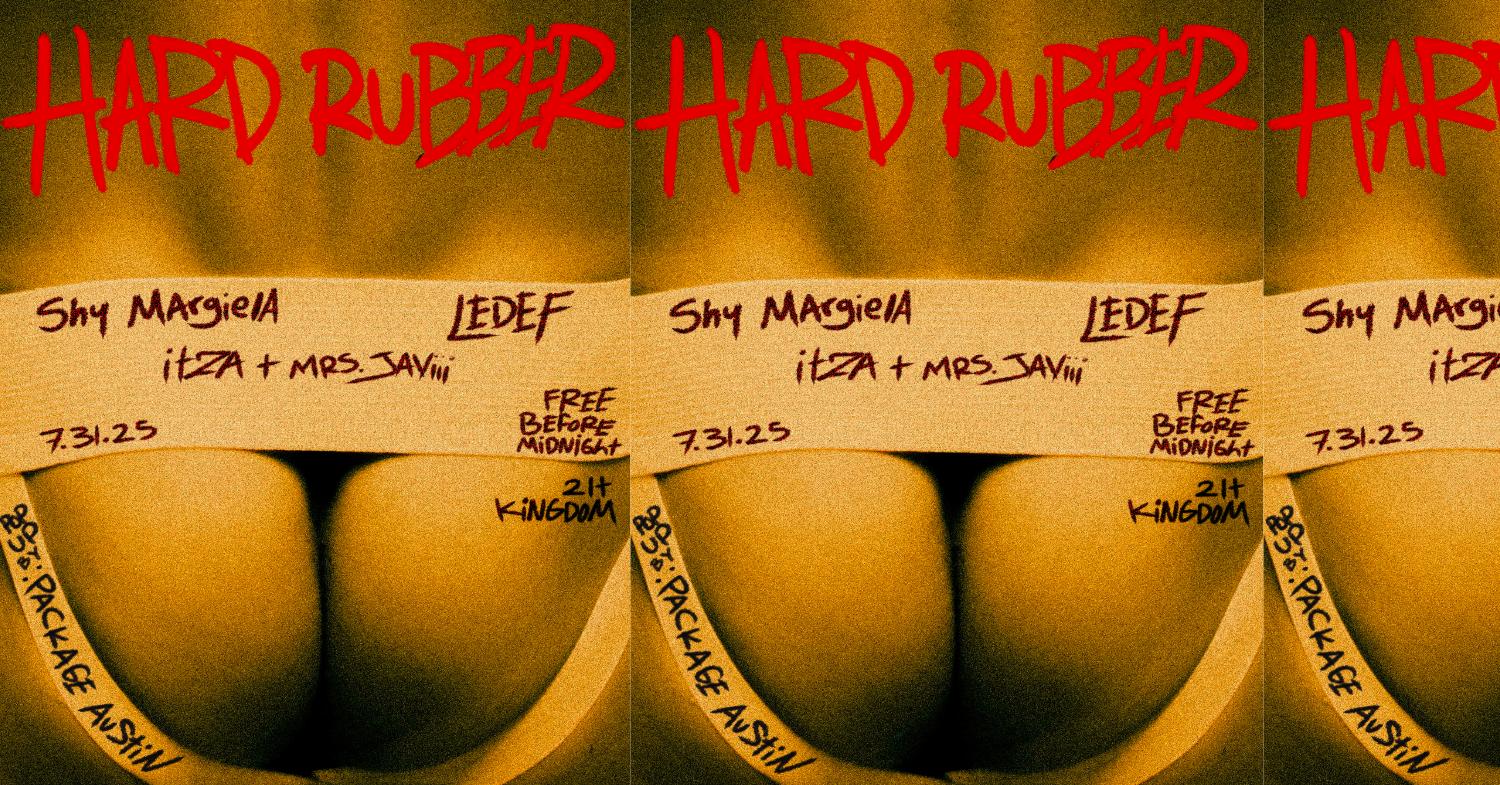 HARD RUBBER
Shy MArgielA
LEDEF
itZA + MRS. JAViii
7.31.25
FREE
BEFORE
MiDNiGht
21+
KiNGDOM
POP
OUT
BY: PACKAGE AuStiN
HARD RUBBER
Shy MArgielA
LEDEF
itZA + MRS. JAViii
7.31.25
FREE
BEFORE
MiDNiGht
21+
KiNGDOM
POP
OUT
BY: PACKAGE AuStiN
HARD
Shy MArgi
itZA
7.31.25
POP
OUT
BY: PACKAGE AuStiN